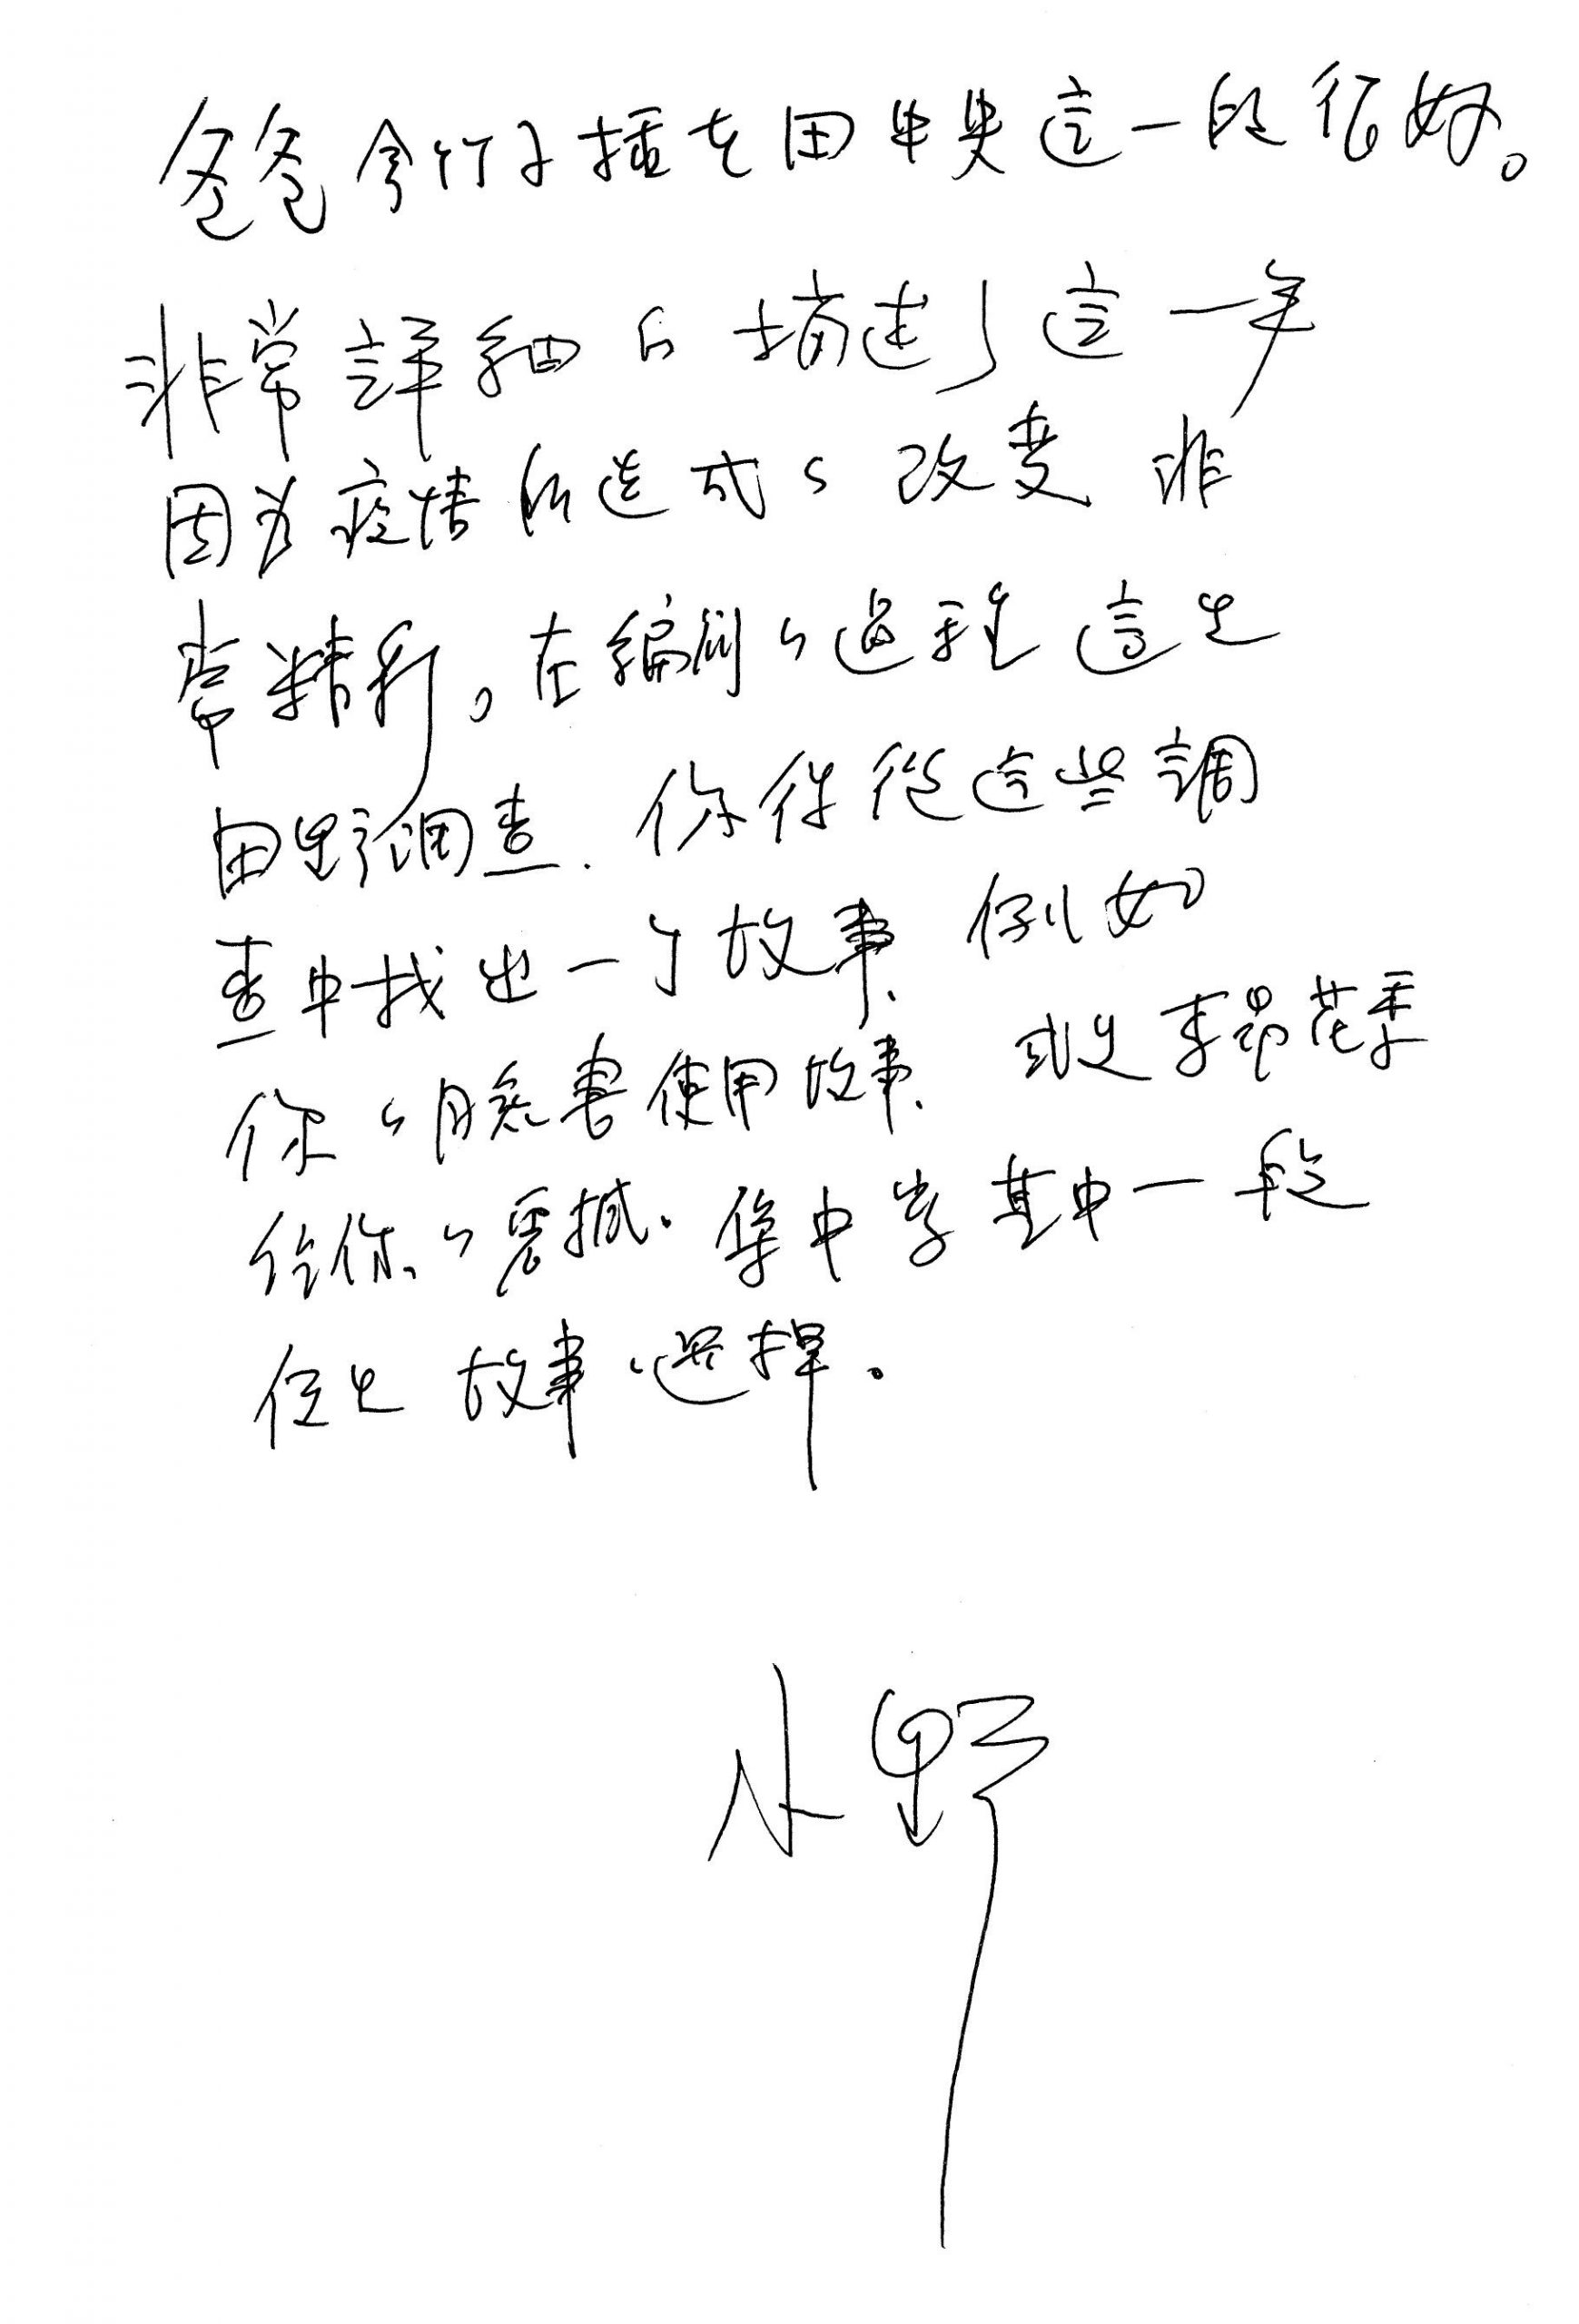 爸爸拿竹子插在田中央這一段很好。
非常詳細的描述了這一年
因為疫情所造成的改變 非
常精彩。在編劇的過程 這是
田野調查. 你得從這些調
查中找出一个故事. 例如
你的臉書使用故事. 或是 花季
給你的震撼. 集中寫其中一段
做 故事的選擇.
小野